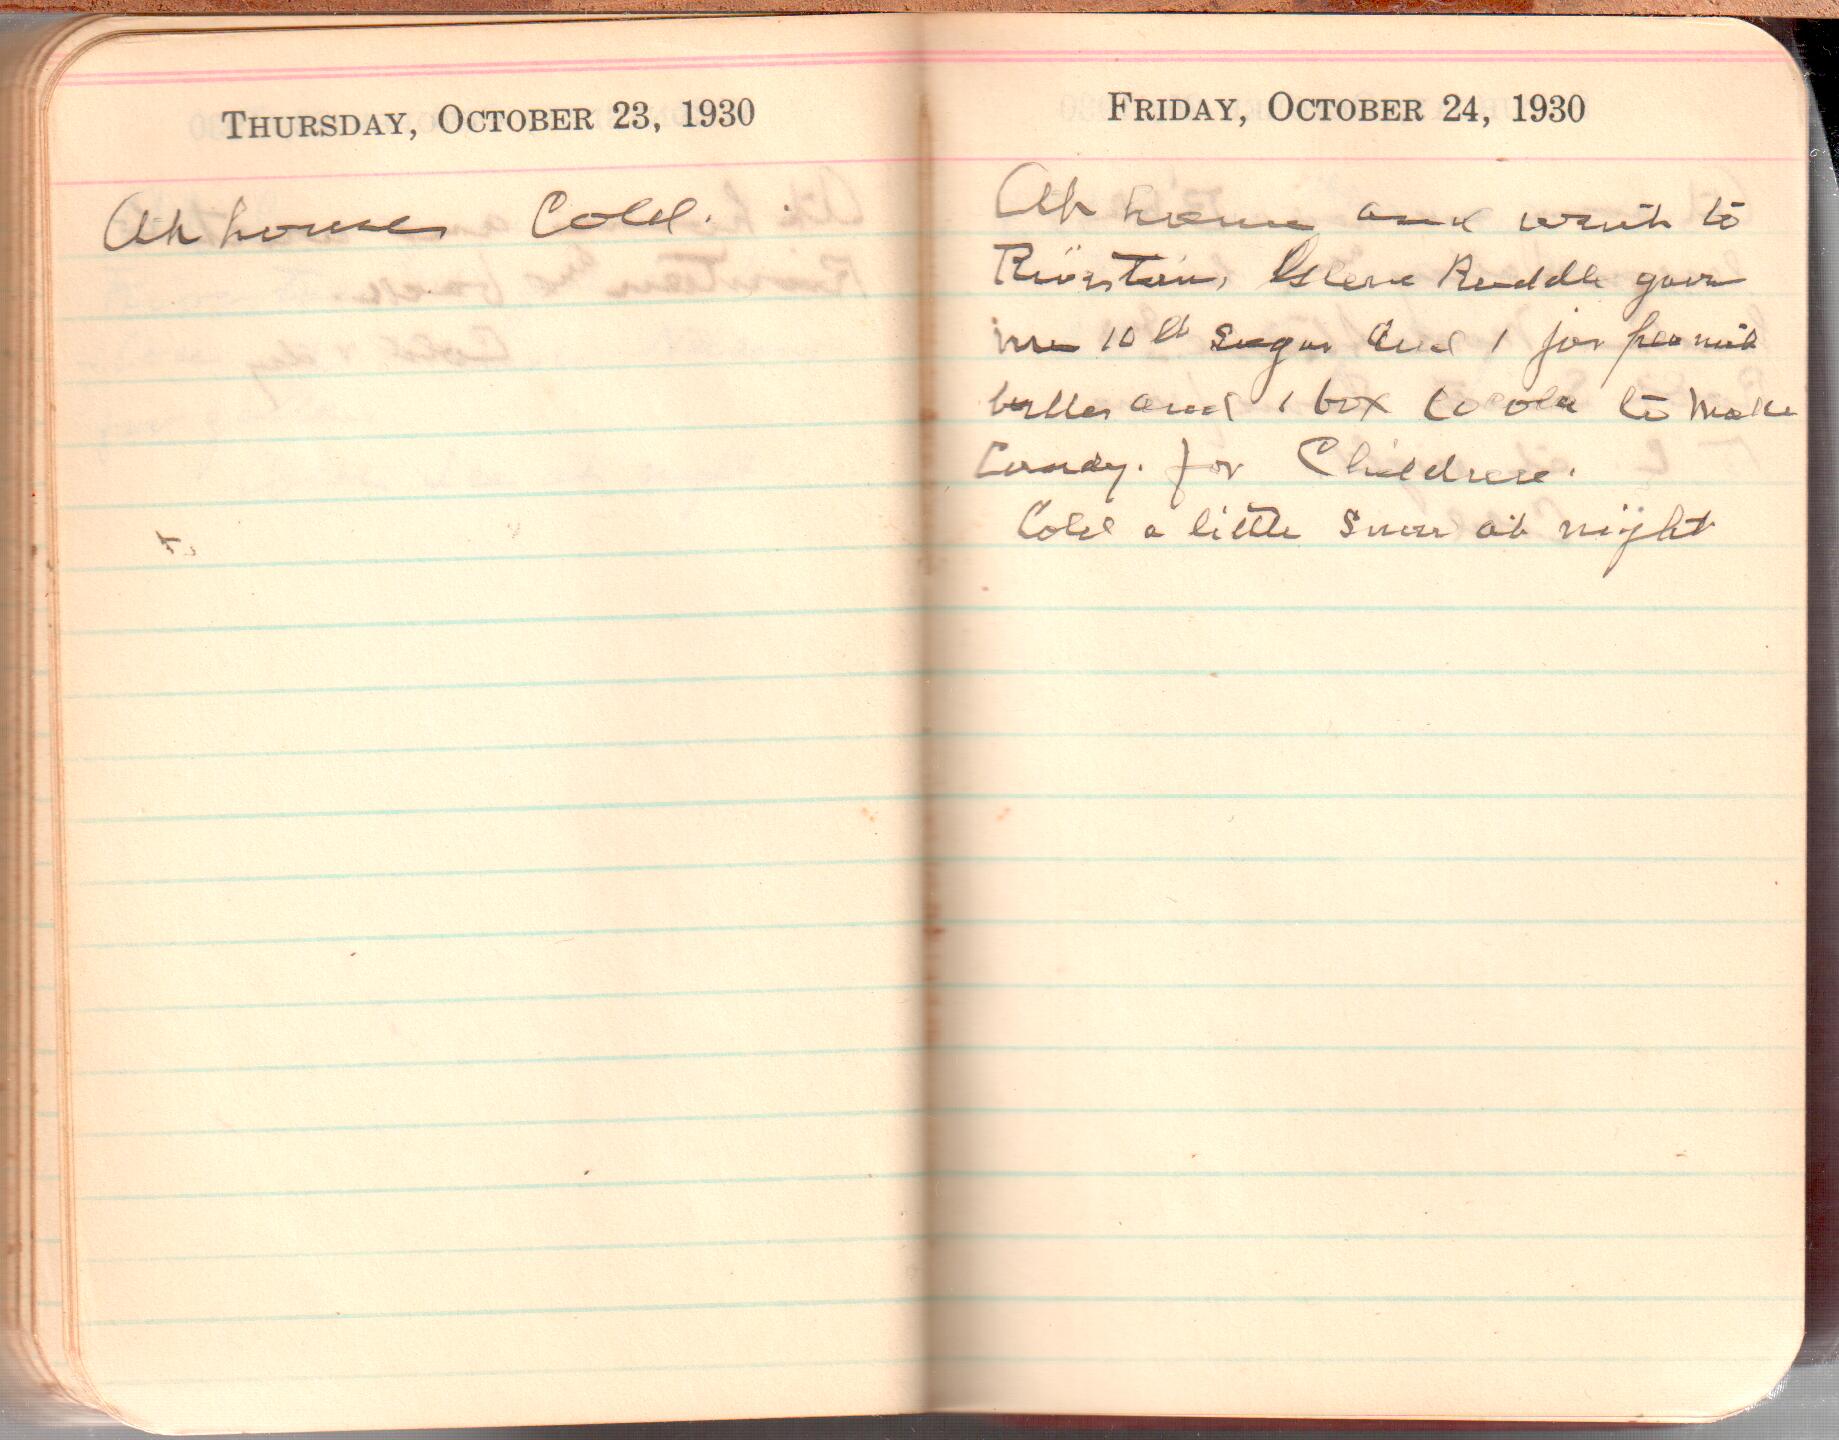 THURSDAY, OCTOBER 23, 1930
At home Cold.
FRIDAY, OCTOBER 24, 1930
At home and went to
Glenn Ruddle gave
me 10 lb sugar and 1 jar peanut
butter and 1 box Cocoa to make
Candy. for Children.
Cold a little Snow at night